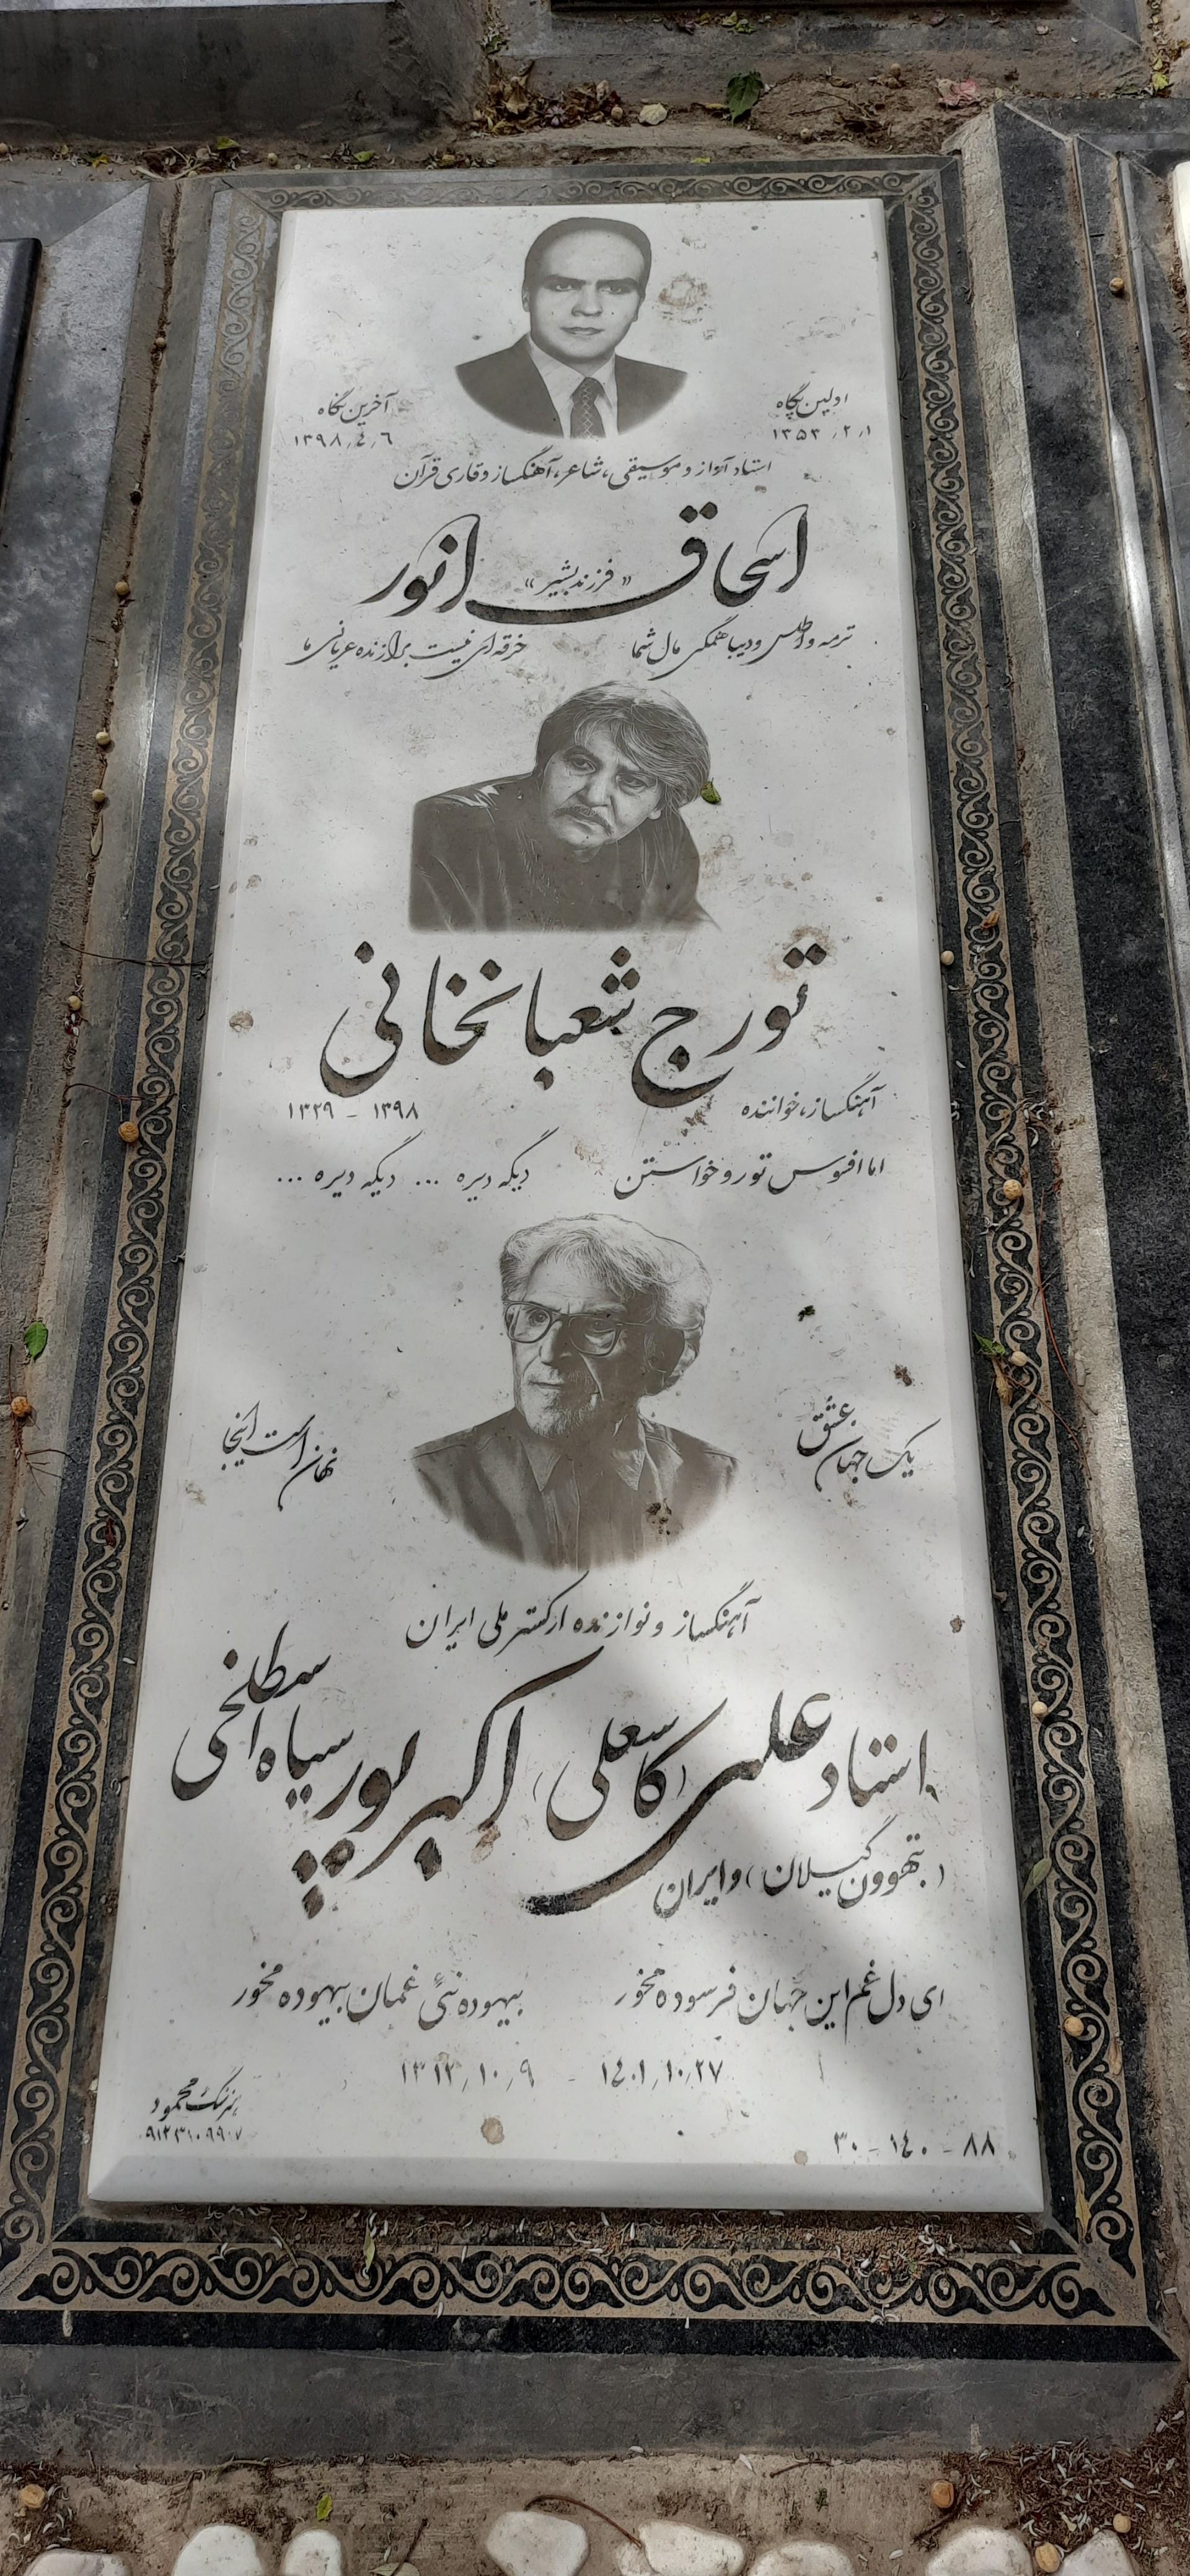 اولین پگاه
۱۳۵۳٫۲٫۱
آخرین نگاه
۱۳۹۸٫٤٫٦
استاد آواز و موسیقی، شاعر، آهنگساز و قاری قرآن
اسحاق انور
«فرزند بشیر»
ترمه و اطلس و دیبا همگی مال شما خرقه ای نیست برازنده عریانی ما
تورج شعبانخانی
آهنگساز، خواننده
۱۳۲۹ - ۱۳۹۸
اما افسوس تو رو خواستن دیگه دیره ... دیگه دیره ...
یک جهان عشق
نهان است اینجا
آهنگساز و نوازنده ارکستر ملی ایران
استاد علی (کاسعلی) اکبرپور سیاه اسطلخی
(بتهوون گیلان) و ایران
ای دل غم این جهان فرسوده مخور بیهوده نئی غمان بیهوده مخور
۱۳۱۳٫۱۰٫۹ - ۱٤۰۱٫۱۰٫۲۷
هنر سنگ محمود
۰۹۱۲۳۱۰۹۹۰۷
۸۸ - ۱٤۰ - ۳۰